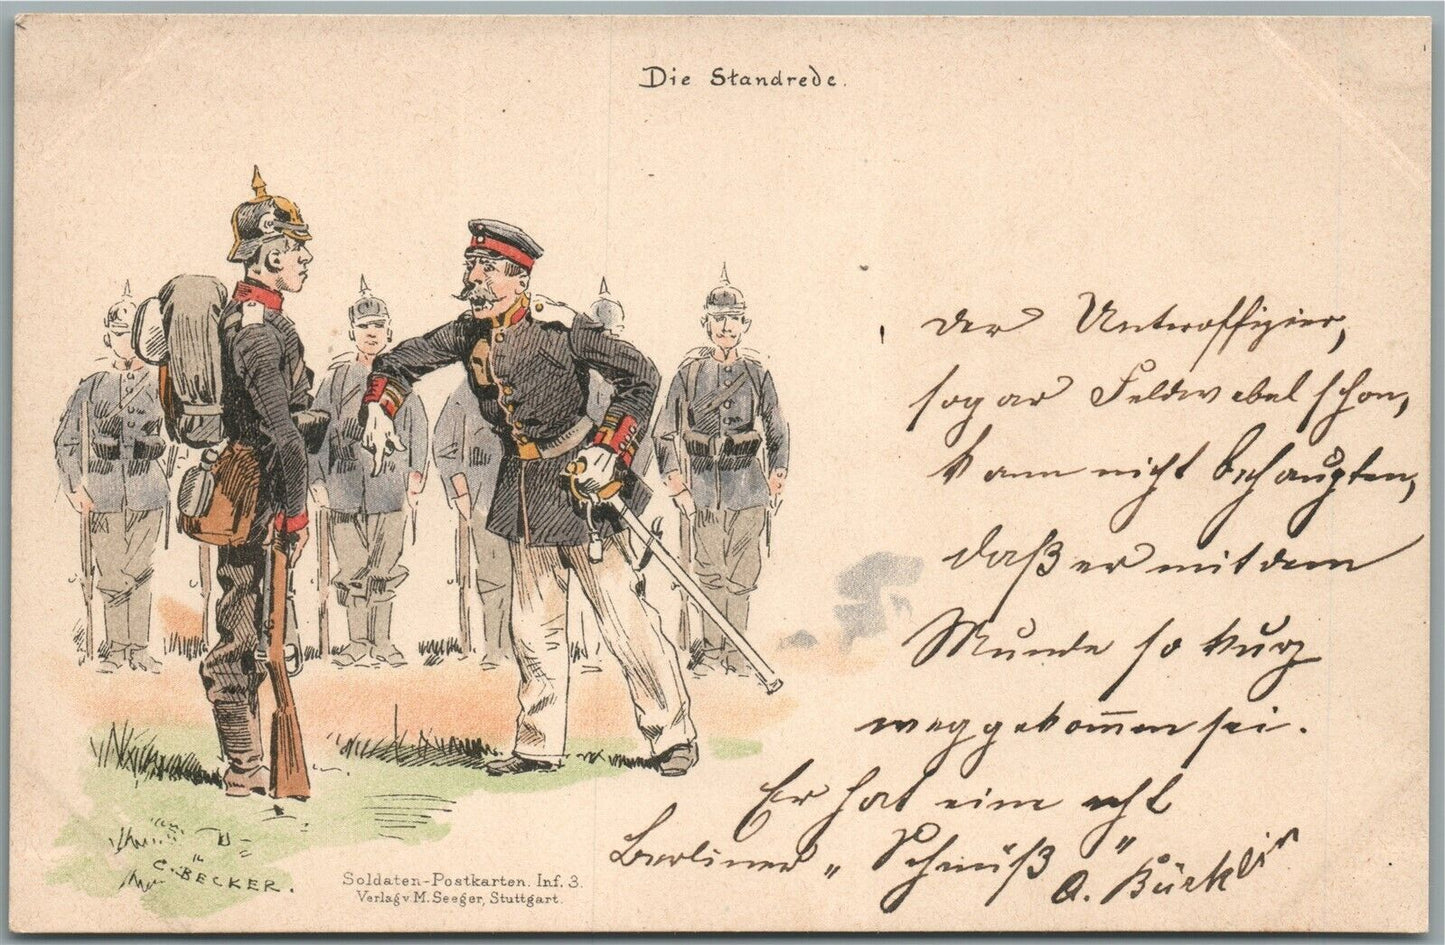 Die Standrede.
Der Unteroffizier,
sogar Feldwebel schon,
kann nicht behaupten,
daß er mit dem
Munde so kurz
weggekom̅en sei.
Er hat eine echt
Berliner „Schnüß"
A. Bürklin
C. BECKER.
Soldaten-Postkarten. Inf. 3.
Verlag v. M. Seeger, Stuttgart.